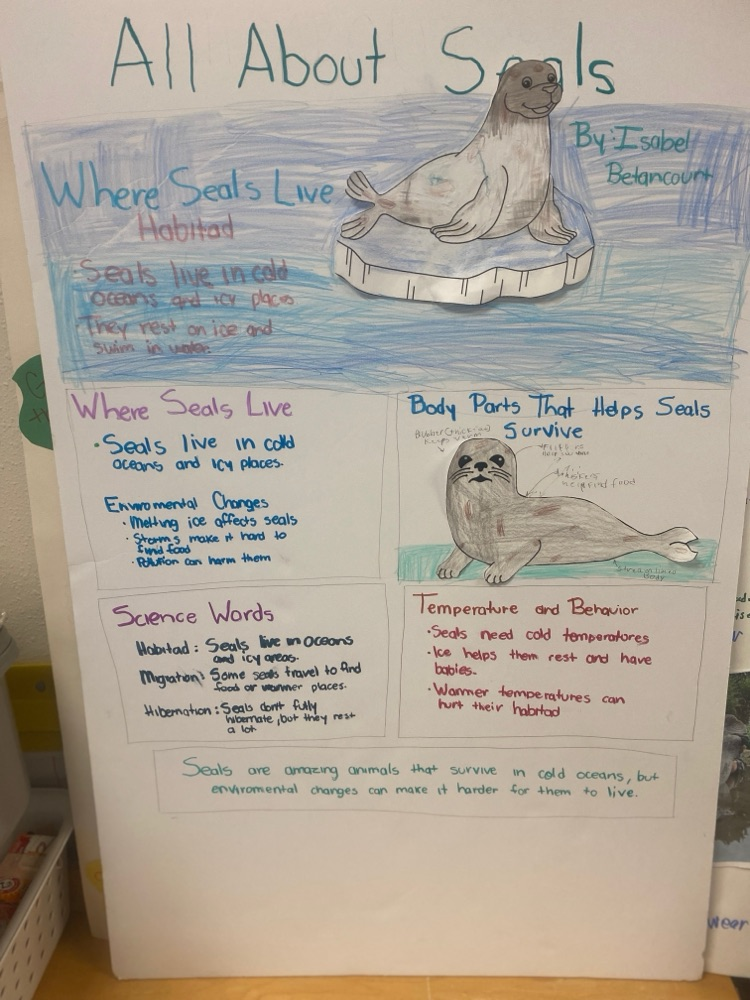 All About Seals
By: Isabel
Betancourt
Where Seals Live
Habitad
Seals live in cold
oceans and icy places
They rest on ice and
swim in water.
Where Seals Live
• Seals live in cold
oceans and icy places.
Enviromental Changes
• Melting ice affects seals
• Storms make it hard to
find food
• Pollution can harm them
Body Parts That Helps Seals
Survive
keeps warm
help find food
Body
Science Words
Habitad: Seals live in oceans
and icy areas.
Migration: Some seals travel to find
food or warmer places.
Hibernation: Seals don't fully
hibernate, but they rest
a lot
Temperature and Behavior
• Seals need cold temperatures
• Ice helps them rest and have
babies.
• Warmer temperatures can
hurt their habitad
Seals are amazing animals that survive in cold oceans, but
enviromental changes can make it harder for them to live.
wear